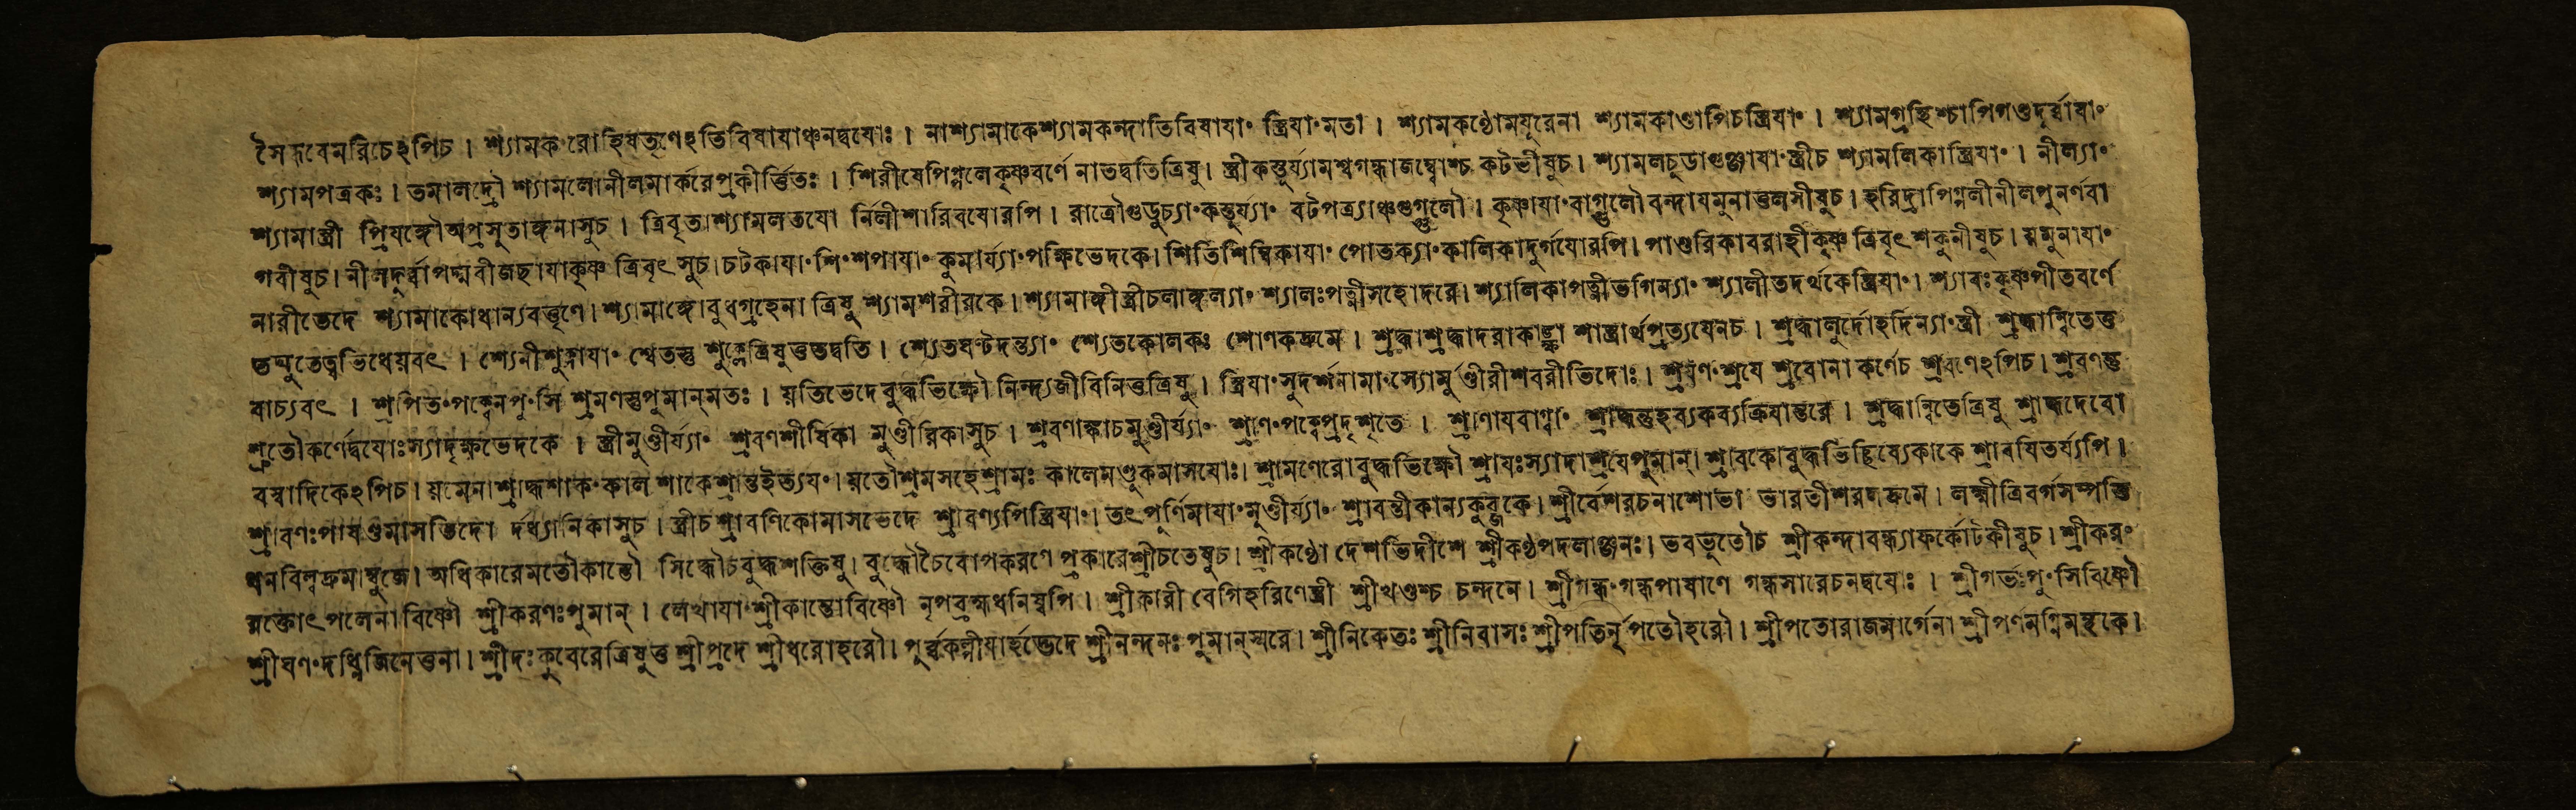 সৈন্ধবেমরিচেঽপিচ । শ্যামকং রোহিষতৃণেঽতিবিষাযাঞ্চনদ্বযোঃ । নাশ্যামাকেশ্যামকন্দাতিবিষাযাং স্ত্রিযাংমতা । শ্যামকণ্ঠোমযূরেনা শ্যামকাণ্ডাপিচস্ত্রিযাং । শ্যামগ্রন্থিশ্চাপিগণ্ডদূর্ব্বাযাং
শ্যামপত্রকঃ । তমালদ্রৌ শ্যামলোনীলমার্করেপ্রকীর্ত্তিতঃ । শিরীষেপিপ্পলেকৃষ্ণবর্ণে নাতদ্বতিত্রিষু । স্ত্রীকস্তূর্য্যামশ্বগন্ধাজম্ব্বোশ্চ কটভীষুচ । শ্যামলচূডাগুঞ্জাযাংস্ত্রীচ শ্যামলিকাস্ত্রিযাং । নীল্যাং
শ্যামাস্ত্রী প্রিযঙ্গৌঅপ্রসূতাঙ্গনাসুচ । ত্রিবৃতাশ্যামলতযো র্নিলীশারিবযোরপি । রাত্রৌগুডুচ্যাংকস্তূর্য্যাং বটপত্র্যাঞ্চগুগ্গুলৌ । কৃষ্ণাযাংবাগুলৌবন্দাযমুনাতুলসীষুচ । হরিদ্রাপিপ্পলীনীলপুনর্ণবা
গবীষুচ । নীলদূর্ব্বাপদ্মবীজছাযাকৃষ্ণ ত্রিবৃৎসুচ । চটকাযাংশিংশপাযাং কুমার্য্যাংপক্ষিভেদকে । শিতিশিম্বিকাযাং পোতক্যাংকালিকাদুর্গযোরপি । পাণ্ডরিকাবরাহীকৃষ্ণ ত্রিবৃৎশকুনীষুচ । যমুনাযাং
নারীভেদে শ্যামাকোধান্যবত্তৃণে । শ্যামাঙ্গোবুধগ্রহেনা ত্রিষু শ্যামশরীরকে । শ্যামাঙ্গীস্ত্রীচলাঙ্গল্যাং শ্যালঃপত্নীসহোদরে । শ্যালিকাপত্নীভগিন্যাং শ্যালীতদর্থকেস্ত্রিযাং । শ্যাবঃকৃষ্ণপীতবর্ণে
তদ্যুতেত্বভিধেযবৎ । শ্যেনীশুক্লাযাং শ্বেতস্তু শুক্লেত্রিষুতুতদ্বতি । শ্যেতঘণ্টদন্ত্যাং শ্যেতকোলকঃ শোণকদ্রুমে । শ্রদ্ধাশ্রদ্ধাদরাকাঙ্ক্ষা শাস্ত্রার্থপ্রত্যযেনচ । শ্রদ্ধালুর্দোহদিন্যাংস্ত্রী শ্রদ্ধান্বিতেতু
বাচ্যবৎ । শ্রপিতংপক্বেনপুংসি শ্রমণস্তুপুমান্মতঃ । যতিভেদেবুদ্ধভিক্ষৌ নিন্দ্যজীবিনিতুত্রিষু । স্ত্রিযাংসুদর্শনামাংস্যোমুর্ণ্ডীরীশবরীভিদোঃ । শ্রবণংশ্রযে শ্রবোনা কর্ণেচ শ্রবণেঽপিচ । শ্রবণস্তু
শ্রুতৌকর্ণেদ্বযোঃস্যাদৃক্ষভেদকে । স্ত্রীমুণ্ডীর্য্যাং শ্রবণশীর্ষিকা মুণ্ডীরিকাসুচ । শ্রবণাহ্বাচমুণ্ডীর্য্যাং শ্রাণংপক্বেপ্রদৃশ্যতে । শ্রাণাযবাগ্বাং শ্রাদ্ধন্তুহব্যকব্যক্রিযান্তরে । শ্রদ্ধান্বিতেত্রিষু শ্রাদ্ধদেবো
বস্বাদিকেঽপিচ । যমেনাশ্রাদ্ধশাকংকাল শাকেশ্রান্তইত্যযং । যতৌশ্রমসহেশ্রামঃ কালেমণ্ডকমাসযোঃ । শ্রামণেরোবুদ্ধভিক্ষৌ শ্রাযঃস্যাদাশ্রযেপুমান্ । শ্রাবকোবুদ্ধভিচ্ছিষ্যেকাকে শ্রাবযিতর্য্যপি ।
শ্রাবণঃপাষণ্ডমাসভিদো র্দধ্যানিকাসুচ । স্ত্রীচশ্রাবণিকোমাসভেদে শ্রাবণ্যপিস্ত্রিযাং । তৎপূর্ণিমাযাংমুণ্ডীর্য্যাং শ্রাবন্তীকান্যকুব্জকে । শ্রীর্বেশরচনাশোভা ভারতীশরলদ্রুমে । লক্ষ্মীত্রিবর্গসম্পত্তি
ধনবিল্বদ্রুমাম্বুজে । অধিকারেমতৌকান্তৌ সিদ্ধৌচবুদ্ধশক্তিষু । বুদ্ধৌচৈবোপকরণে প্রকারেশ্রীচতেষুচ । শ্রীকণ্ঠো দেশভিদীশে শ্রীকণ্ঠপদলাঞ্জনঃ । ভবভূতৌচ শ্রীকন্দাবন্ধ্যাফর্কোটকীষুচ । শ্রীকরং
রক্তোৎপলেনাবিষ্ণৌ শ্রীকরণঃপুমান্ । লেখাযাংশ্রীকান্তোবিষ্ণৌ নৃপব্রহ্মধনিষ্বপি । শ্রীকারী বেগিহরিণেস্ত্রী শ্রীখণ্ডশ্চ চন্দনে । শ্রীগন্ধংগন্ধপাষাণে গন্ধসারেচনদ্বযোঃ । শ্রীগর্ভঃপুংসিবিষ্ণৌ
শ্রীঘণংদধ্নিজিনেতুনা । শ্রীদঃকুবেরেত্রিষুতু শ্রীপ্রদে শ্রীধরোহরৌ । পূর্ব্বকল্পীযার্হদ্ভেদে শ্রীনন্দনঃ পুমান্স্মরে । শ্রীনিকেতঃ শ্রীনিবাসঃ শ্রীপতির্নৃপতৌহরৌ । শ্রীপতোরাজমার্গেনা শ্রীপর্ণমগ্নিমন্থকে ।